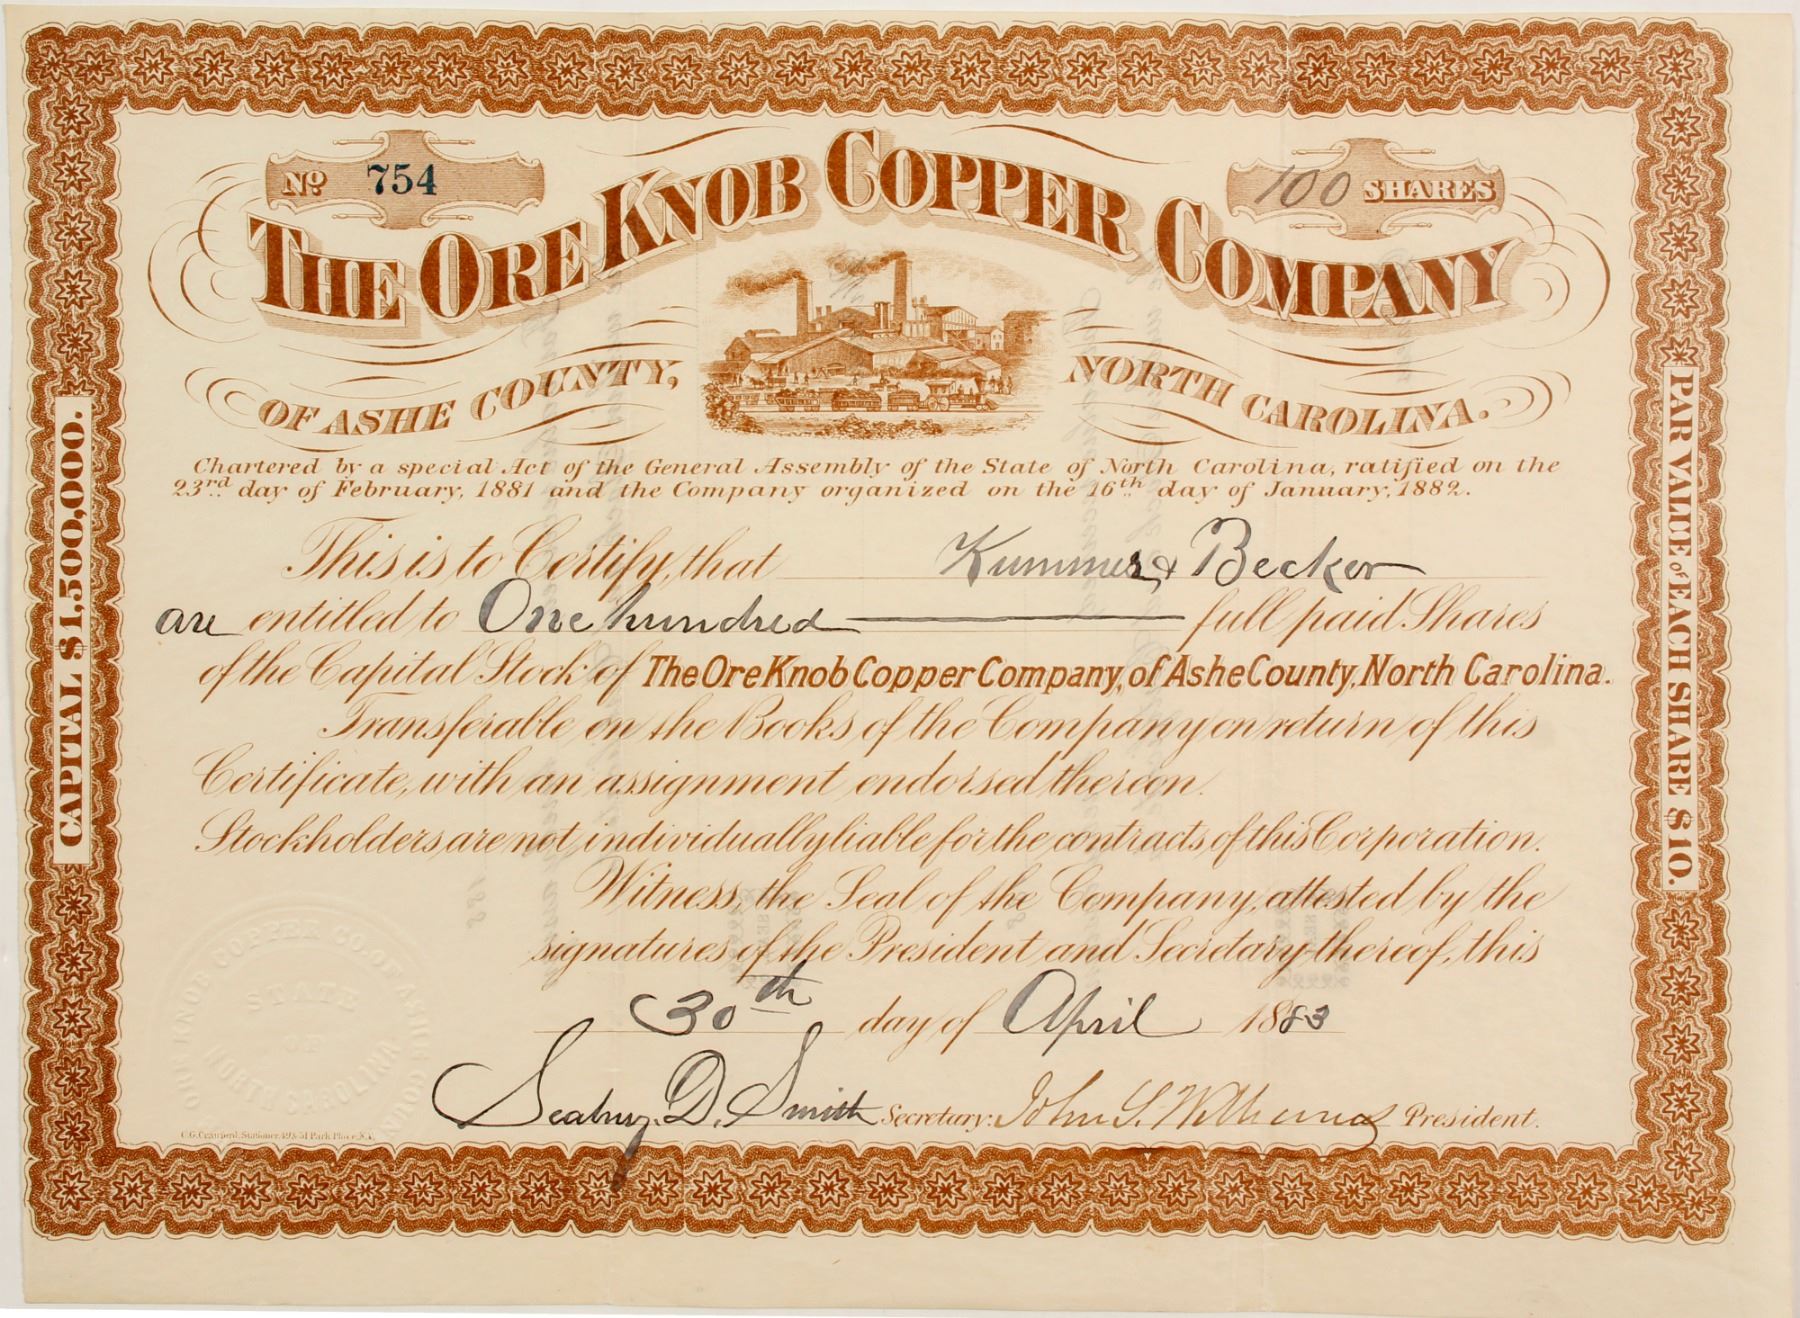 No 754
100 SHARES
THE ORE KNOB COPPER COMPANY
OF ASHE COUNTY, NORTH CAROLINA.
Chartered by a special Act of the General Assembly of the State of North Carolina, ratified on the
23rd day of February, 1881 and the Company organized on the 16th day of January, 1882.
This is to Certify, that Kummer & Becker
are entitled to One hundred full paid Shares
of the Capital Stock of The Ore Knob Copper Company, of Ashe County, North Carolina.
Transferable on the Books of the Company on return of this
Certificate, with an assignment endorsed thereon.
Stockholders are not individually liable for the contracts of this Corporation.
Witness, the Seal of the Company, attested by the
signatures of the President and Secretary thereof, this
30th day of April 1883
Seabury D. Smith Secretary: John S. President.
C.G. Crawford, Stationer, 49 & 51 Park Place, N.Y.
CAPITAL $1,500,000.
PAR VALUE of EACH SHARE $10.
ORE KNOB COPPER CO. OF ASHE CO.
STATE
OF
NORTH CAROLINA